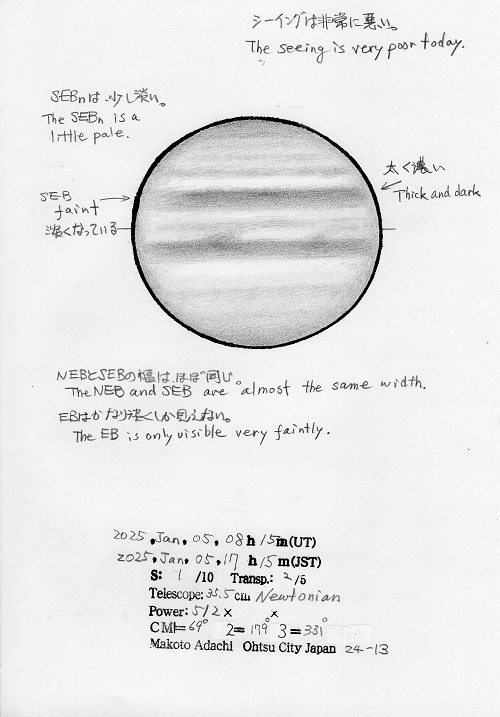 シーイングは非常に悪い。
The seeing is very poor today.
SEBnは、少し淡い。
The SEBn is a
little pale.
太く濃い
Thick and dark
SEB
faint
淡くなっている
NEBとSEBの幅は、ほぼ同じ。
The NEB and SEB are almost the same width.
EBはかなり淡くしか見えない。
The EB is only visible very faintly.
2025, Jan, 05, 08 h 15 m (UT)
2025, Jan, 05, 17 h 15 m (JST)
S: 1 /10 Transp.: 2/5
Telescope: 35.5 cm Newtonian
Power: 512 x x
CM1= 69° 2= 179° 3= 331°
Makoto Adachi Ohtsu City Japan 24-13